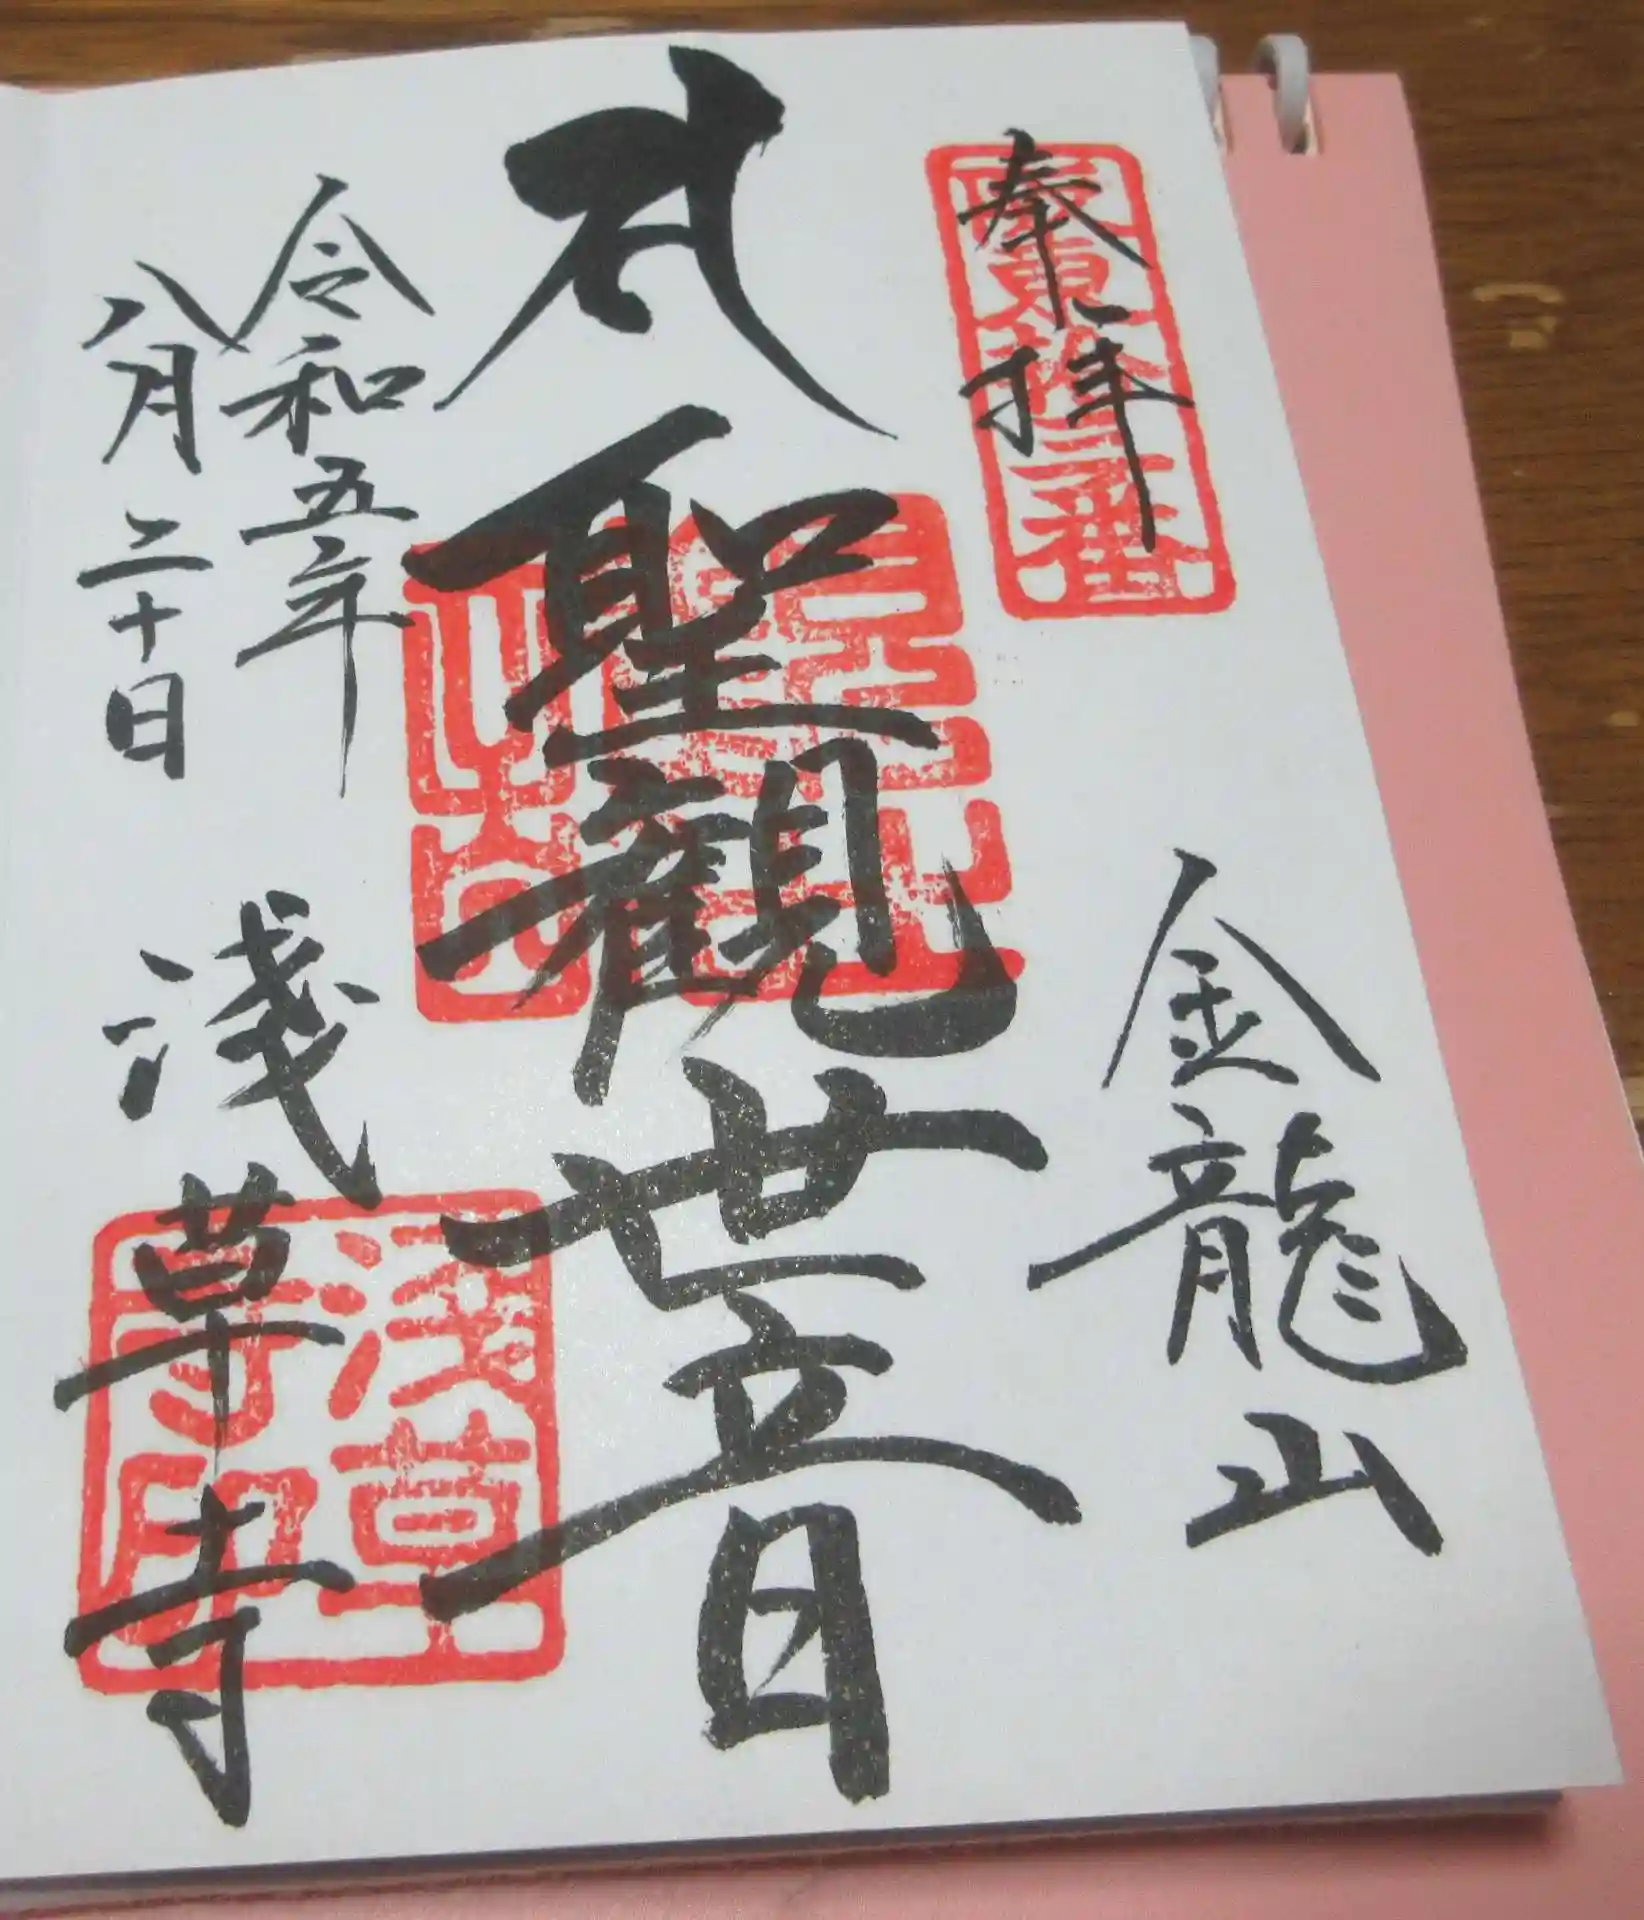 奉拝
坂東拾三番
金龍山
聖観世音
令和五年
八月二十日
浅草寺
浅草
寺印